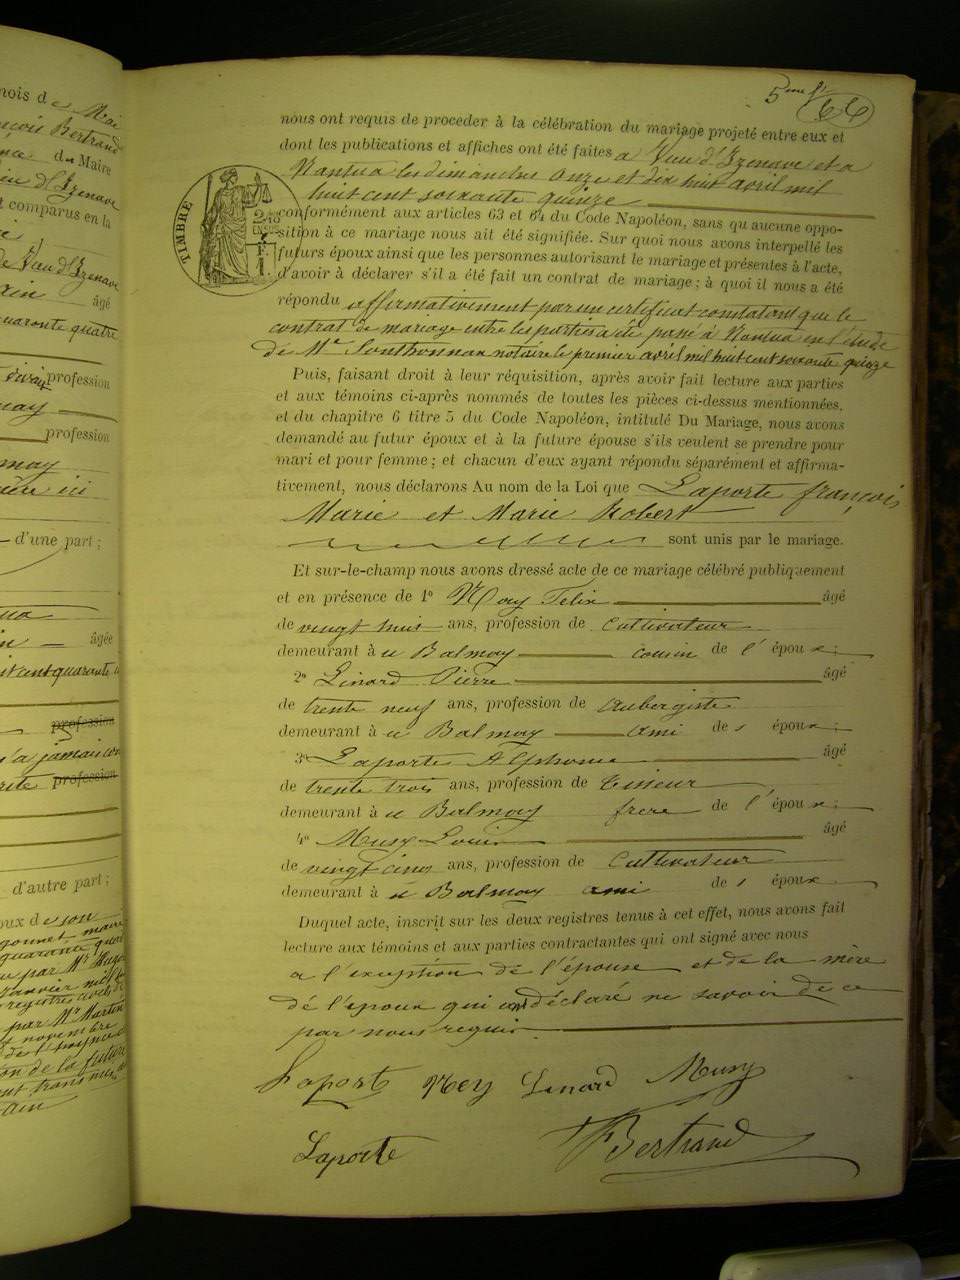 mois de Mai
François Bertrand
du Maire
Vieu d'Izenave
comparus en la
de Vieu d'Izenave
Ain âgé
quarante quatre
profession
profession
ici
d'une part ;
âgée
profession
n'a jamais
profession
d'autre part ;
5me ft
66
nous ont requis de proceder à la célébration du mariage projeté entre eux et
dont les publications et affiches ont été faites a Vieu d'Izenave et a
Nantua les dimanches onze et dix huit avril mil
huit cent soixante quinze
TIMBRE
conformément aux articles 63 et 64 du Code Napoléon, sans qu'aucune oppo-
sition à ce mariage nous ait été signifiée. Sur quoi nous avons interpellé les
futurs époux ainsi que les personnes autorisant le mariage et présentes à l'acte,
d'avoir à déclarer s'il a été fait un contrat de mariage ; à quoi il nous a été
répondu affirmativement par un certificat constatant que le
contrat de mariage entre les parties a été passé à Nantua en l'étude
de Me Southonnax notaire le premier avril mil huit cent soixante quinze
Puis, faisant droit à leur réquisition, après avoir fait lecture aux parties
et aux témoins ci-après nommés de toutes les pièces ci-dessus mentionnées,
et du chapitre 6 titre 5 du Code Napoléon, intitulé Du Mariage, nous avons
demandé au futur époux et à la future épouse s'ils veulent se prendre pour
mari et pour femme ; et chacun d'eux ayant répondu séparément et affirma-
tivement, nous déclarons Au nom de la Loi que Laporte françois
Marie et Marie Robert
sont unis par le mariage.
Et sur-le-champ nous avons dressé acte de ce mariage célébré publiquement
et en présence de 1o Rey Felix âgé
de vingt huit ans, profession de Cultivateur
demeurant à a Balmay cousin de l'époux ;
2o Linard Pierre âgé
de trente neuf ans, profession de Aubergiste
demeurant à a Balmay ami de s époux ;
3o Laporte Alphonse âgé
de trente trois ans, profession de Tisseur
demeurant à a Balmay frere de l'époux ;
4o Musy Louis âgé
de vingt cinq ans, profession de Cultivateur
demeurant à a Balmay ami de s époux
Duquel acte, inscrit sur les deux registres tenus à cet effet, nous avons fait
lecture aux témoins et aux parties contractantes qui ont signé avec nous
a l'exception de l'épouse et de la mère
de l'époux qui ont déclaré ne savoir de ce
par nous requis
Laport Rey Linard Musy
Laporte Bertrand